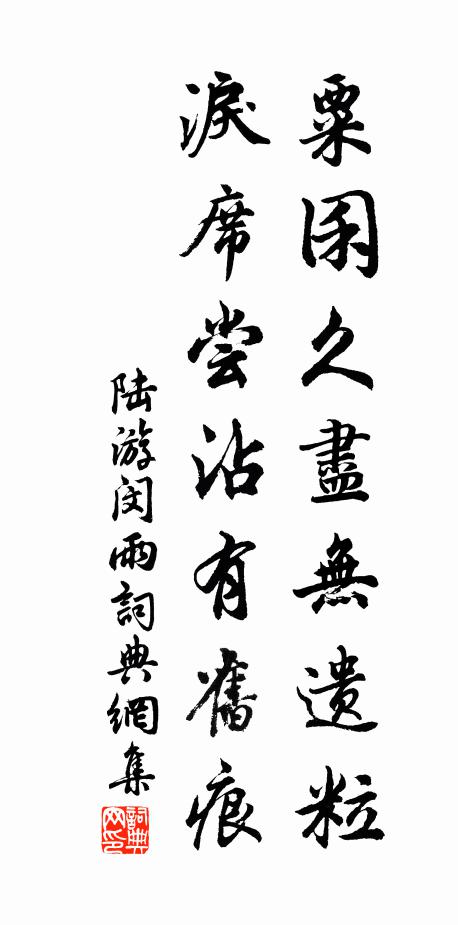 粟囷久盡無遺粒
淚席尝沾有舊痕
陆游闵雨詞典網集
詞典
网印